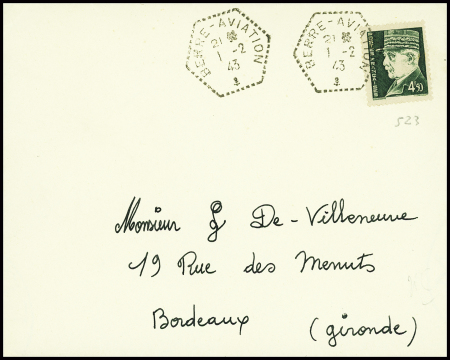 BERRE-AVIATION
21 *
1-2
43
BERRE-AVIATION
21 *
1-2
43
4,50
523
Monsieur G De-Villeneuve
19 Rue des Menuts
Bordeaux (gironde)